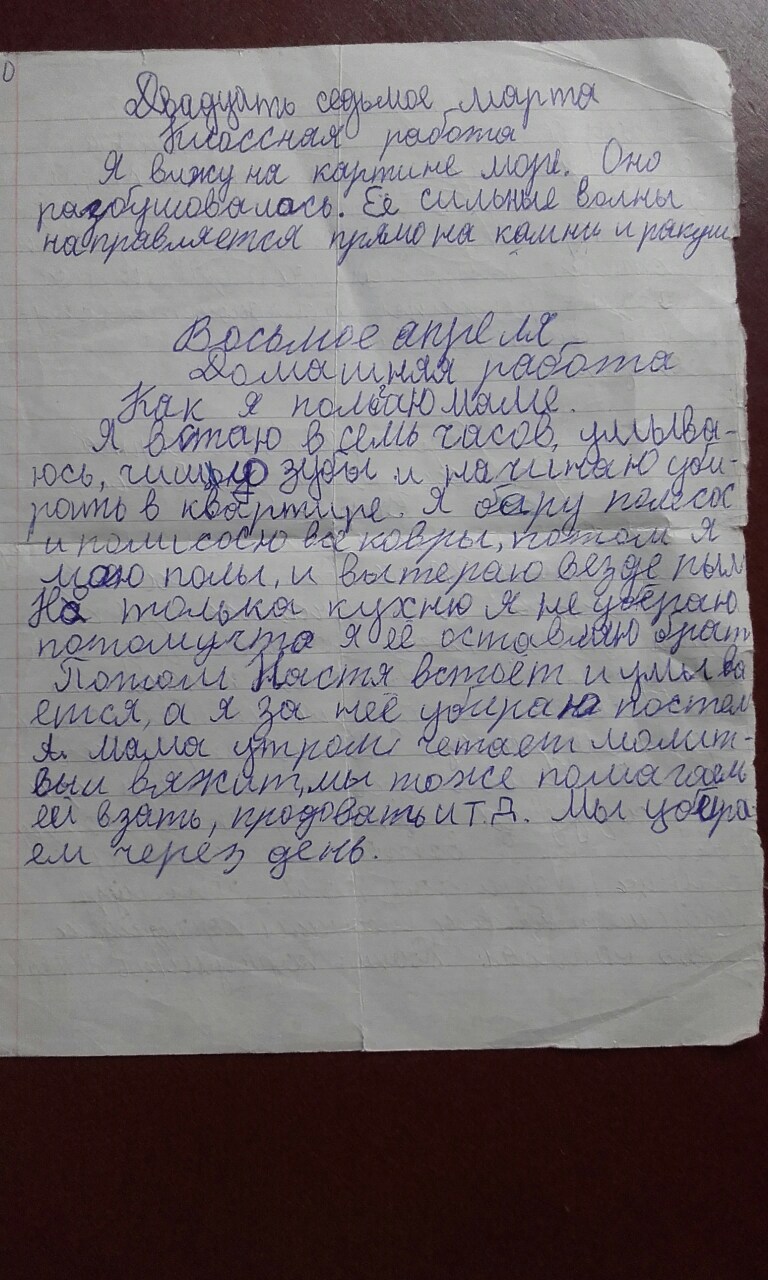 Двадцать седьмое марта
Классная работа
Я вижу на картине море. Оно
разбушовалось. Её сильные волны
направляется прямо на камни и ракуш
Восьмое апреля
Домашняя работа
Как я помогаю маме.
Я встаю в семь часов, умыва-
юсь, чищу зубы и начинаю уби-
рать в квартире. Я беру полисос
и полисосю все ковры, потом я
мою полы, и вытераю везде пыл
Но толька кухню я не убераю
потомучто я её оставляю брат
Потом Настя встоёт и умыва
ется, а я за неё убираю постел
А мама утром четает молит-
вы и вяжит, мы тоже помагаем
ей взать, продовать и т.д. Мы убера-
ем через день.